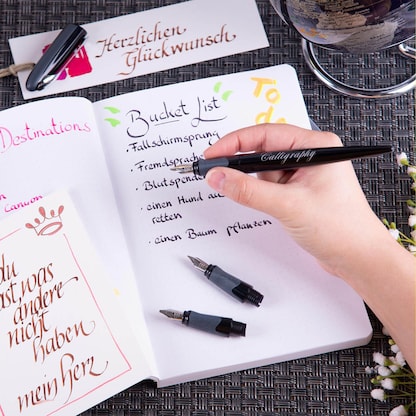 Herzlichen
Glückwunsch
Destinations
canyon
Bucket List
· Fallschirmsprung
· Fremdsprache
· Blutspende
· einen Hund au
retten
· einen Baum pflanzen
To
do
Calligraphy
du
hast, was
andere
nicht
haben
mein Herz